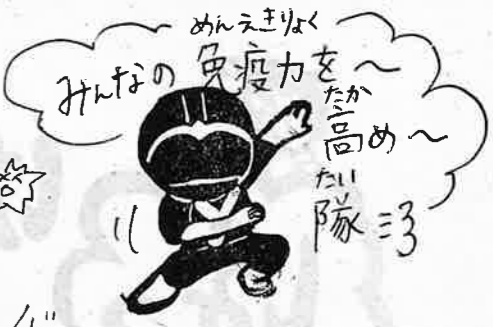 めんえきりょく
みんなの免疫力を〜
たか
高め〜
たい
隊